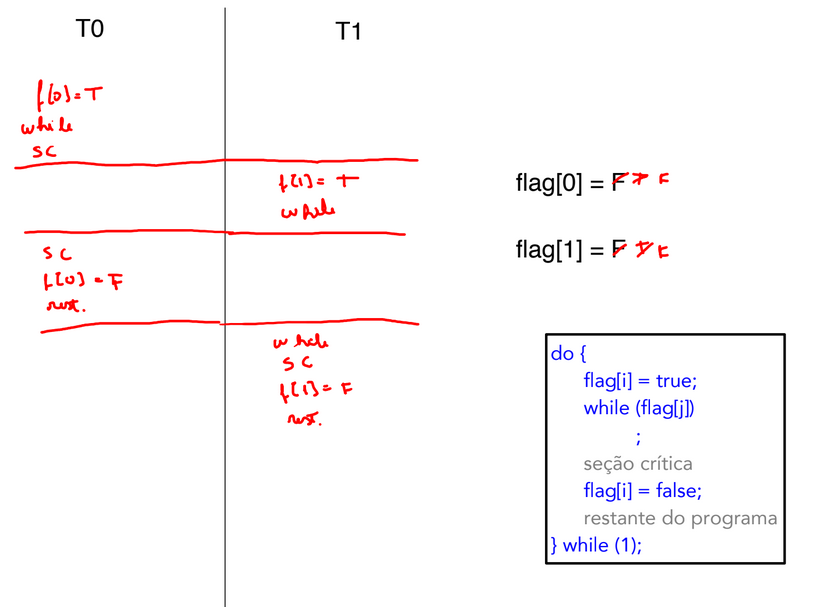 T0
T1
f[0]= T
while
SC
f[1]= T
while
SC
f[0] = F
rest.
while
SC
f[1]= F
rest.
flag[0] = F T F
flag[1] = F T F
do {
flag[i] = true;
while (flag[j])
;
seção crítica
flag[i] = false;
restante do programa
} while (1);